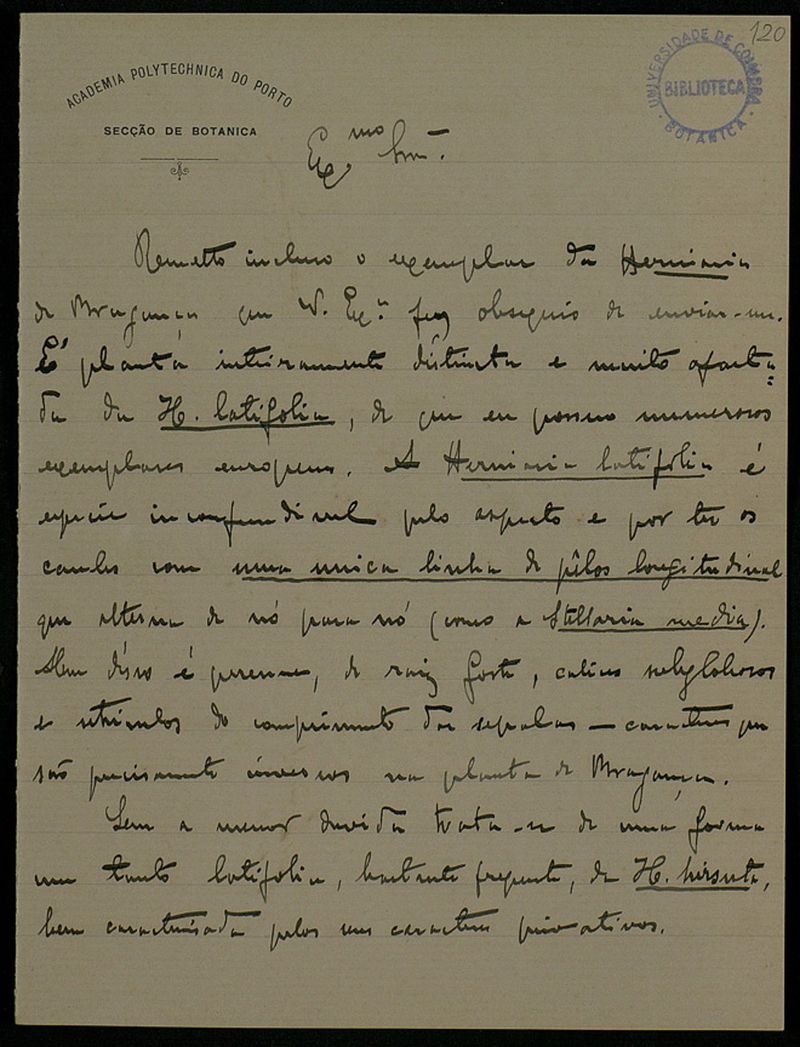 120
UNIVERSIDADE DE COIMBRA
BIBLIOTECA
BOTANICA
ACADEMIA POLYTECHNICA DO PORTO
SECÇÃO DE BOTANICA
Exmo Snr.
Remetto incluso o exemplar da Herniaria
de Bragança que V. Exa fez obsequio de enviar-me.
É planta inteiramente distincta e muito afasta=
da da H. latifolia, de que eu possuo numerosos
exemplares europeus. A Herniaria latifolia é
especie inconfundivel pelo aspecto e por ter os
caules com uma unica linha de pêlos longitudinal
que alterna de nó para nó (como a Stellaria media).
Alem disso é perenne, de raiz forte, calices subglobosos
e utriculos do comprimento das sepalas – caracteres que
são precisamente inversos na planta de Bragança.
Sem a menor duvida trata-se de uma forma
um tanto latifolia, bastante frequente, da H. hirsuta,
bem caracterisada pelos seus caracteres privativos.